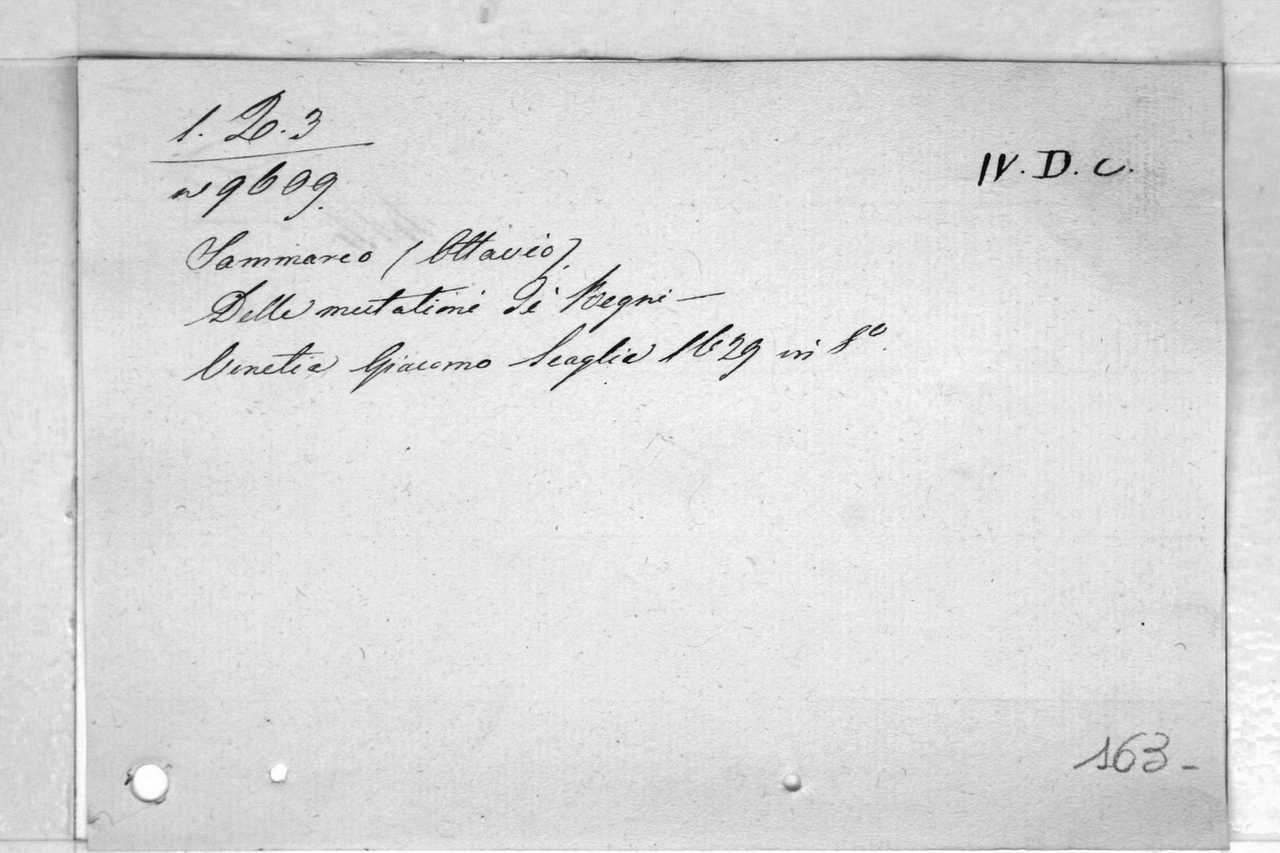 1. D. 3
IV. D. C.
n 9699.
Sammarco (Ottavio)
Delle mutationi de' Regni —
Venetia Giacomo Scaglia 1629 in 8º.
163 -